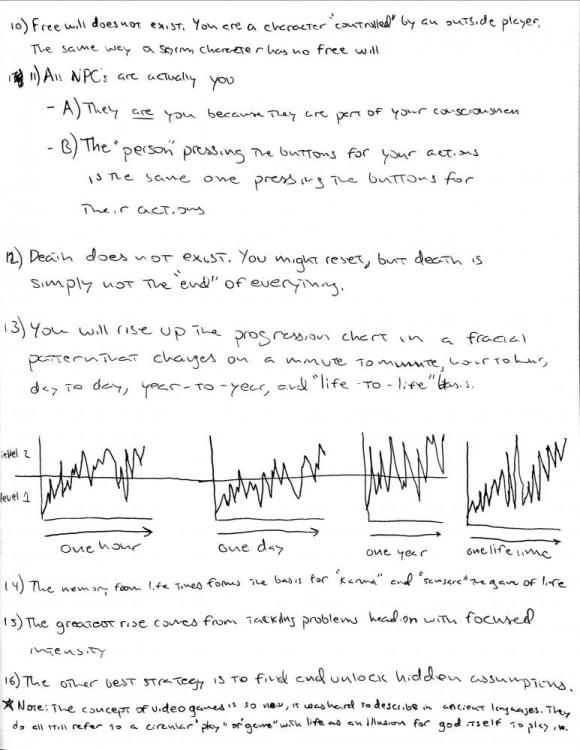 10) Free will does not exist. You are a character "controlled" by an outside player.
The same way a character has no free will
11) All NPC's are actually you
- A) They are you because they are part of your consciousness
- B) The "person" pressing the buttons for your actions
is the same one pressing the buttons for
their actions
12) Death does not exist. You might reset, but death is
simply not the "end" of everything.
13) You will rise up the progression chart in a fractal
pattern that changes on a minute to minute, hour to hour,
day to day, year-to-year, and "life-to-life" basis.
level 2
level 1
one hour
one day
one year
one lifetime
14) The memory from life times forms the basis for "karma" and "samsara" the game of life
15) The greatest rise comes from tackling problems head on with focused
intensity
16) The other best strategy is to find and unlock hidden assumptions.
★ Note: The concept of video games is so new, it was hard to describe in ancient languages. They
do all still refer to a circular "play" or "game" with life as an illusion for god itself to play in.